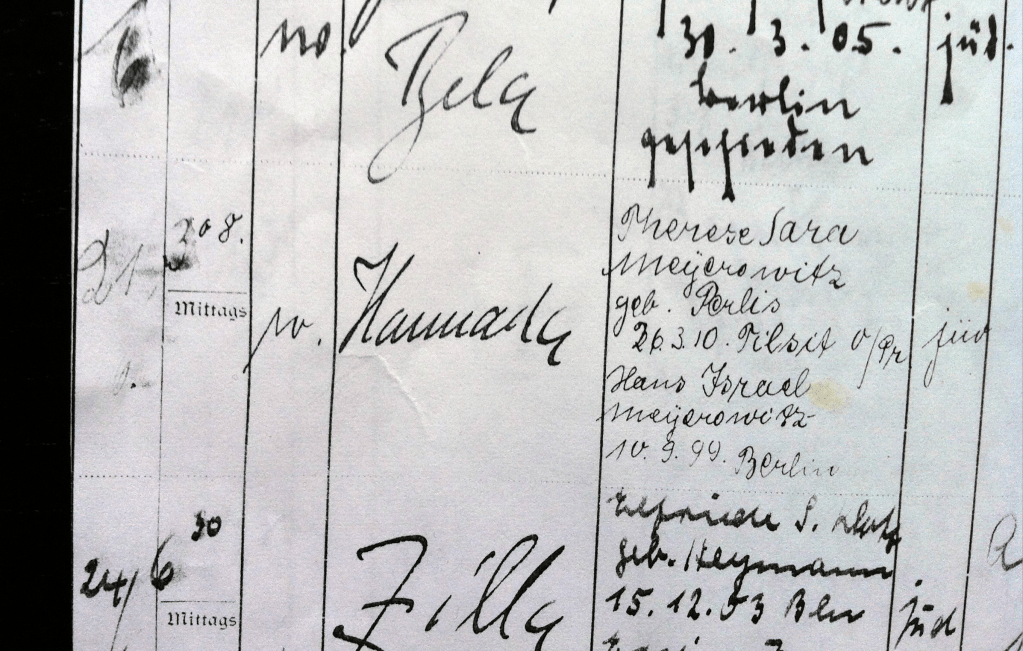 6
w.
Bela
30. 3. 05.
jüd.
Berlin
geschieden
21.
208.
Mittags
w.
Hannada
Therese Sara
Meyerowitz
geb. Perlis
26.3.10. Tilsit O/Pr
jüd
Hans Israel
Meyerowitz
10. 9. 99. Berlin
24/
6 30
Mittags
Zilla
S.
geb. Heymann
15. 12. 03 Bln
jüd